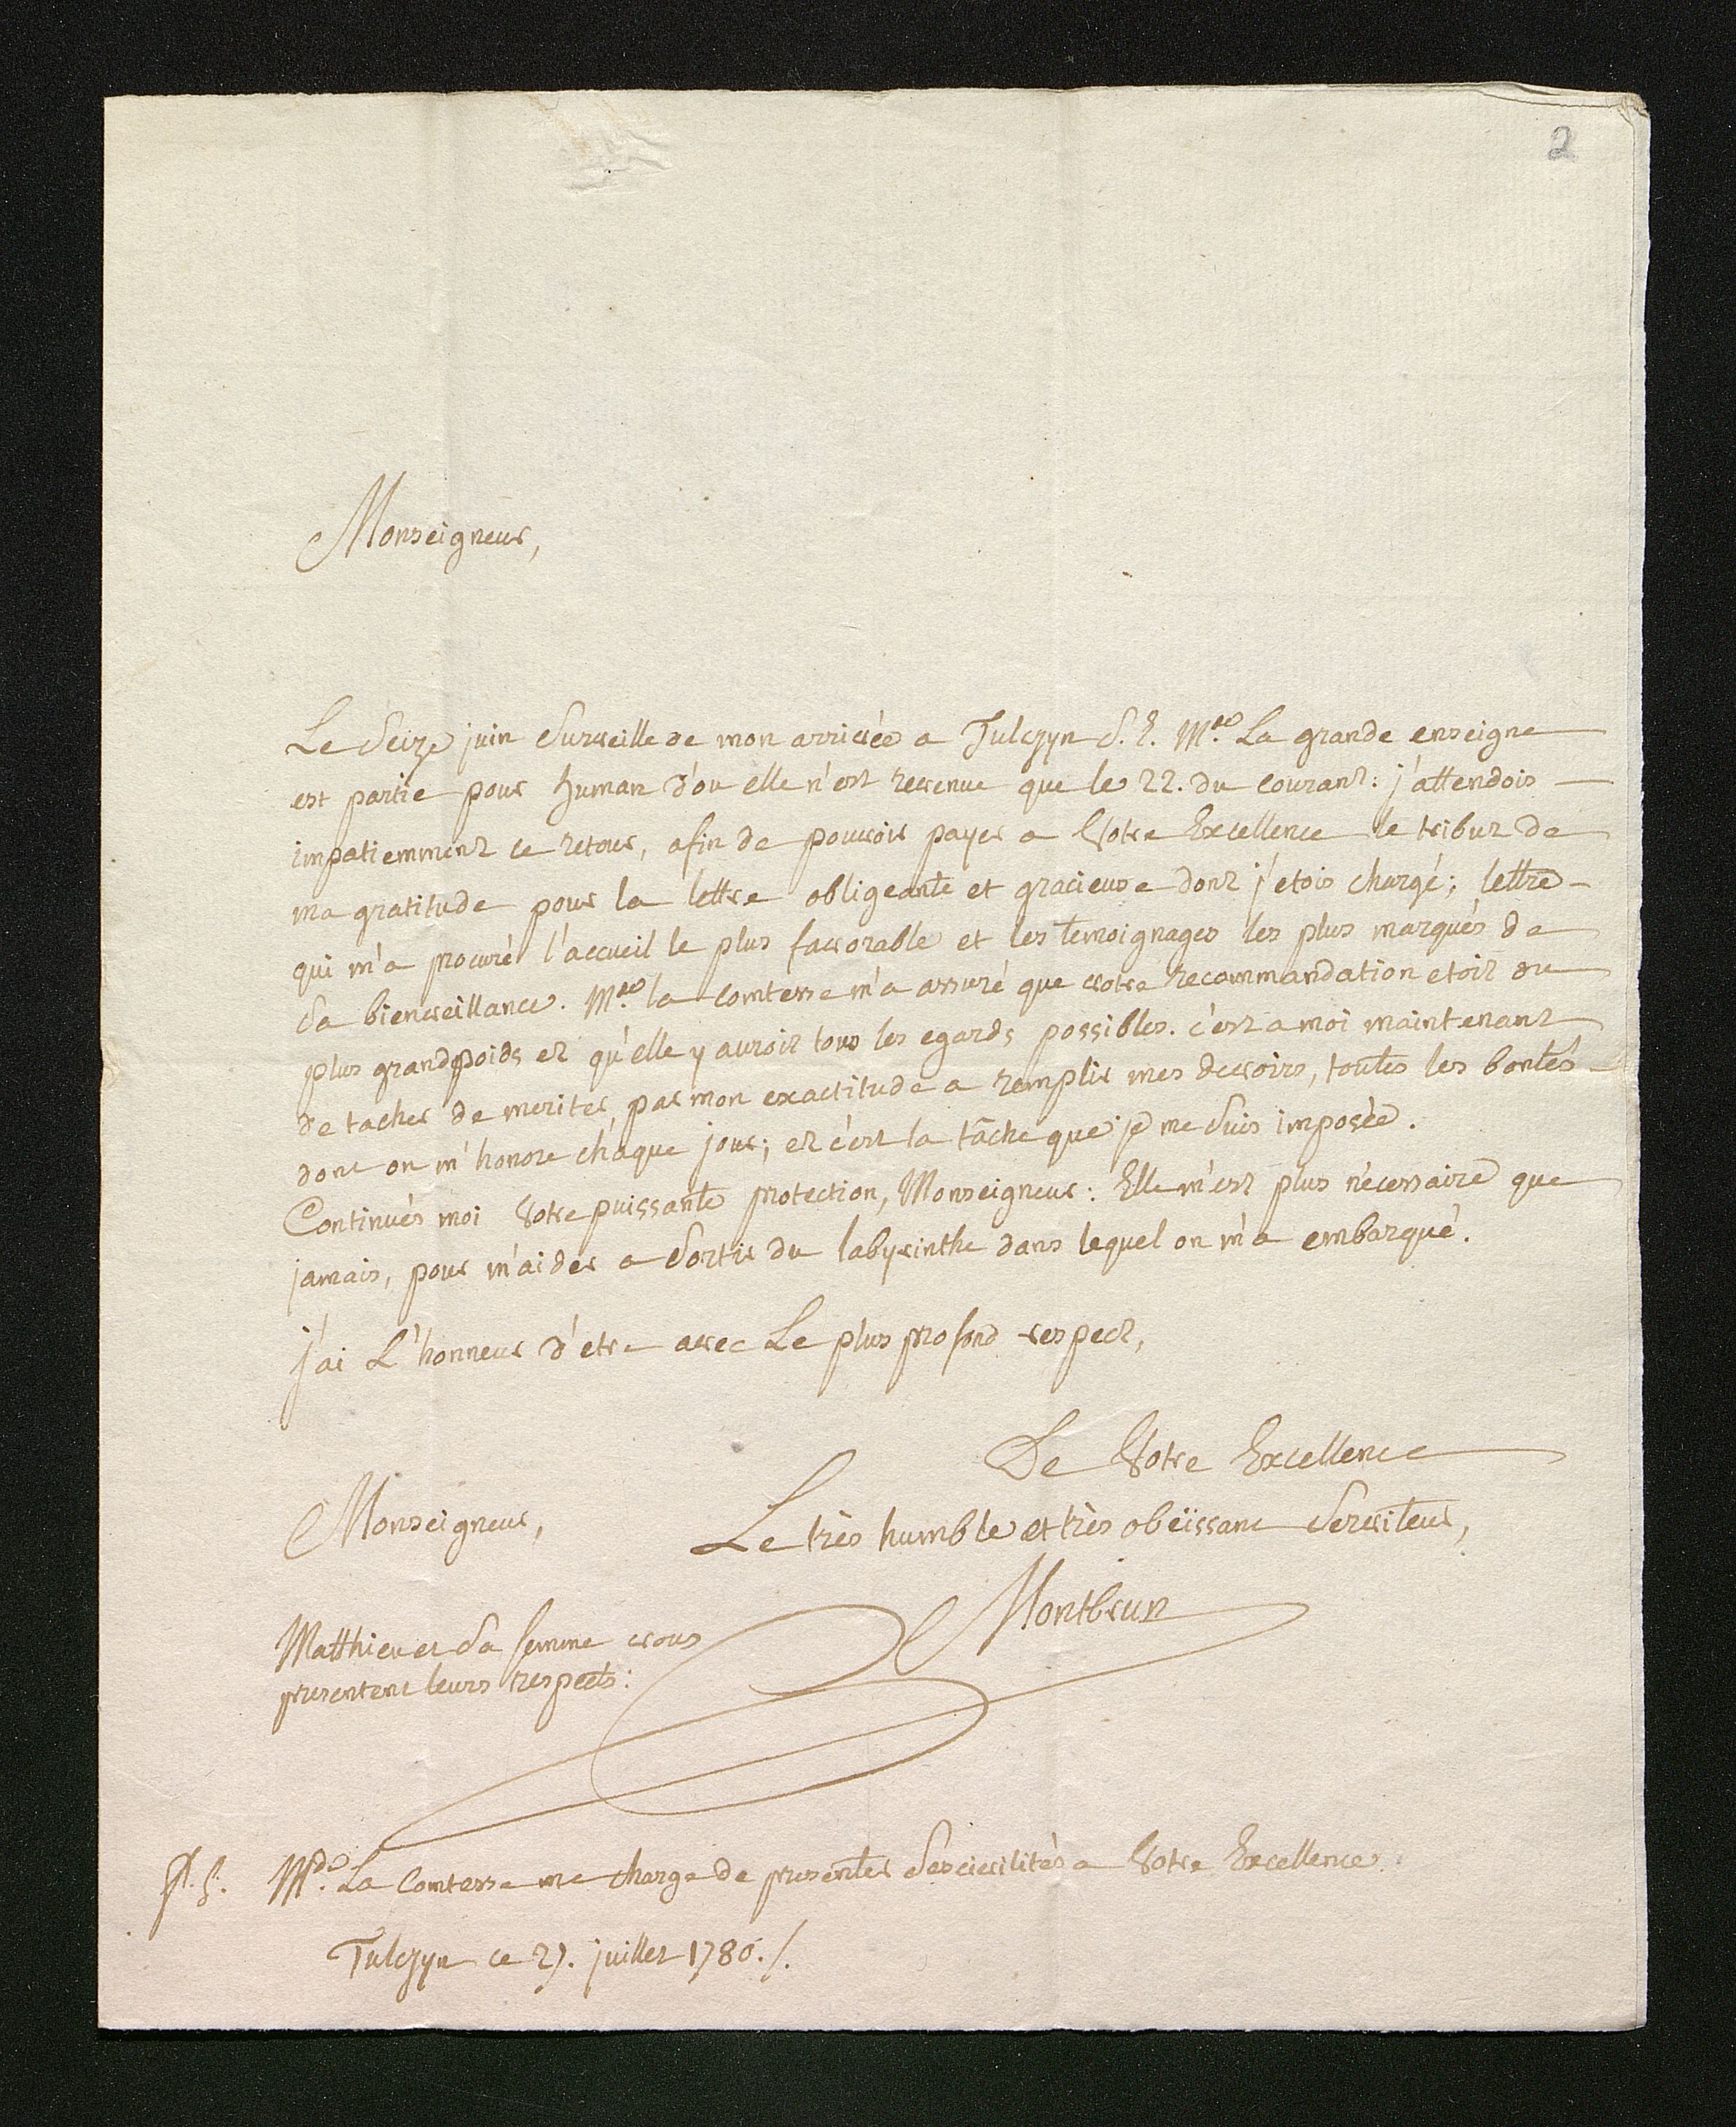 2
Monseigneur,
Le Seize juin Surveille de mon arrivée a Tulczyn S. E. M.de La grande enseigne
est partie pour human d'ou elle n'est revenue que le 22. du courant: j'attendois
impatiemment ce retour, afin de pouvoir payer a Votre Excellence le tribut de
ma gratitude pour la lettre obligeante et gracieuse dont j'etois chargé; lettre
qui m'a procuré l'accueil le plus favorable et les temoignages les plus marqués de
Sa bienveillance. M.de la comtesse m'a assuré que votre recommandation etoit du
plus grand poids et qu'elle y auroit tous les egards possibles. c'est a moi maintenant
de tacher de meriter, par mon exactitude a remplir mes devoirs, toutes les bontés
dont on m'honore chaque jour; et c'est la tâche que je me Suis imposée.
Continués moi Votre puissante protection, Monseigneur: Elle m'est plus nécessaire que
jamais, pour m'aider a Sortir du labyrinthe dans lequel on m'a embarqué.
j'ai L'honneur d'etre avec Le plus profond respect,
De Votre Excellence
Monseigneur,
Le très humble et très obeïssant Serviteur,
Montbrun
Matthieu et Sa femme vous
presentent leurs respects:
P. S. M.de La Comtesse me charge de presenter Ses civilités a Votre Excellence.
Tulczyn ce 27. juillet 1786./.